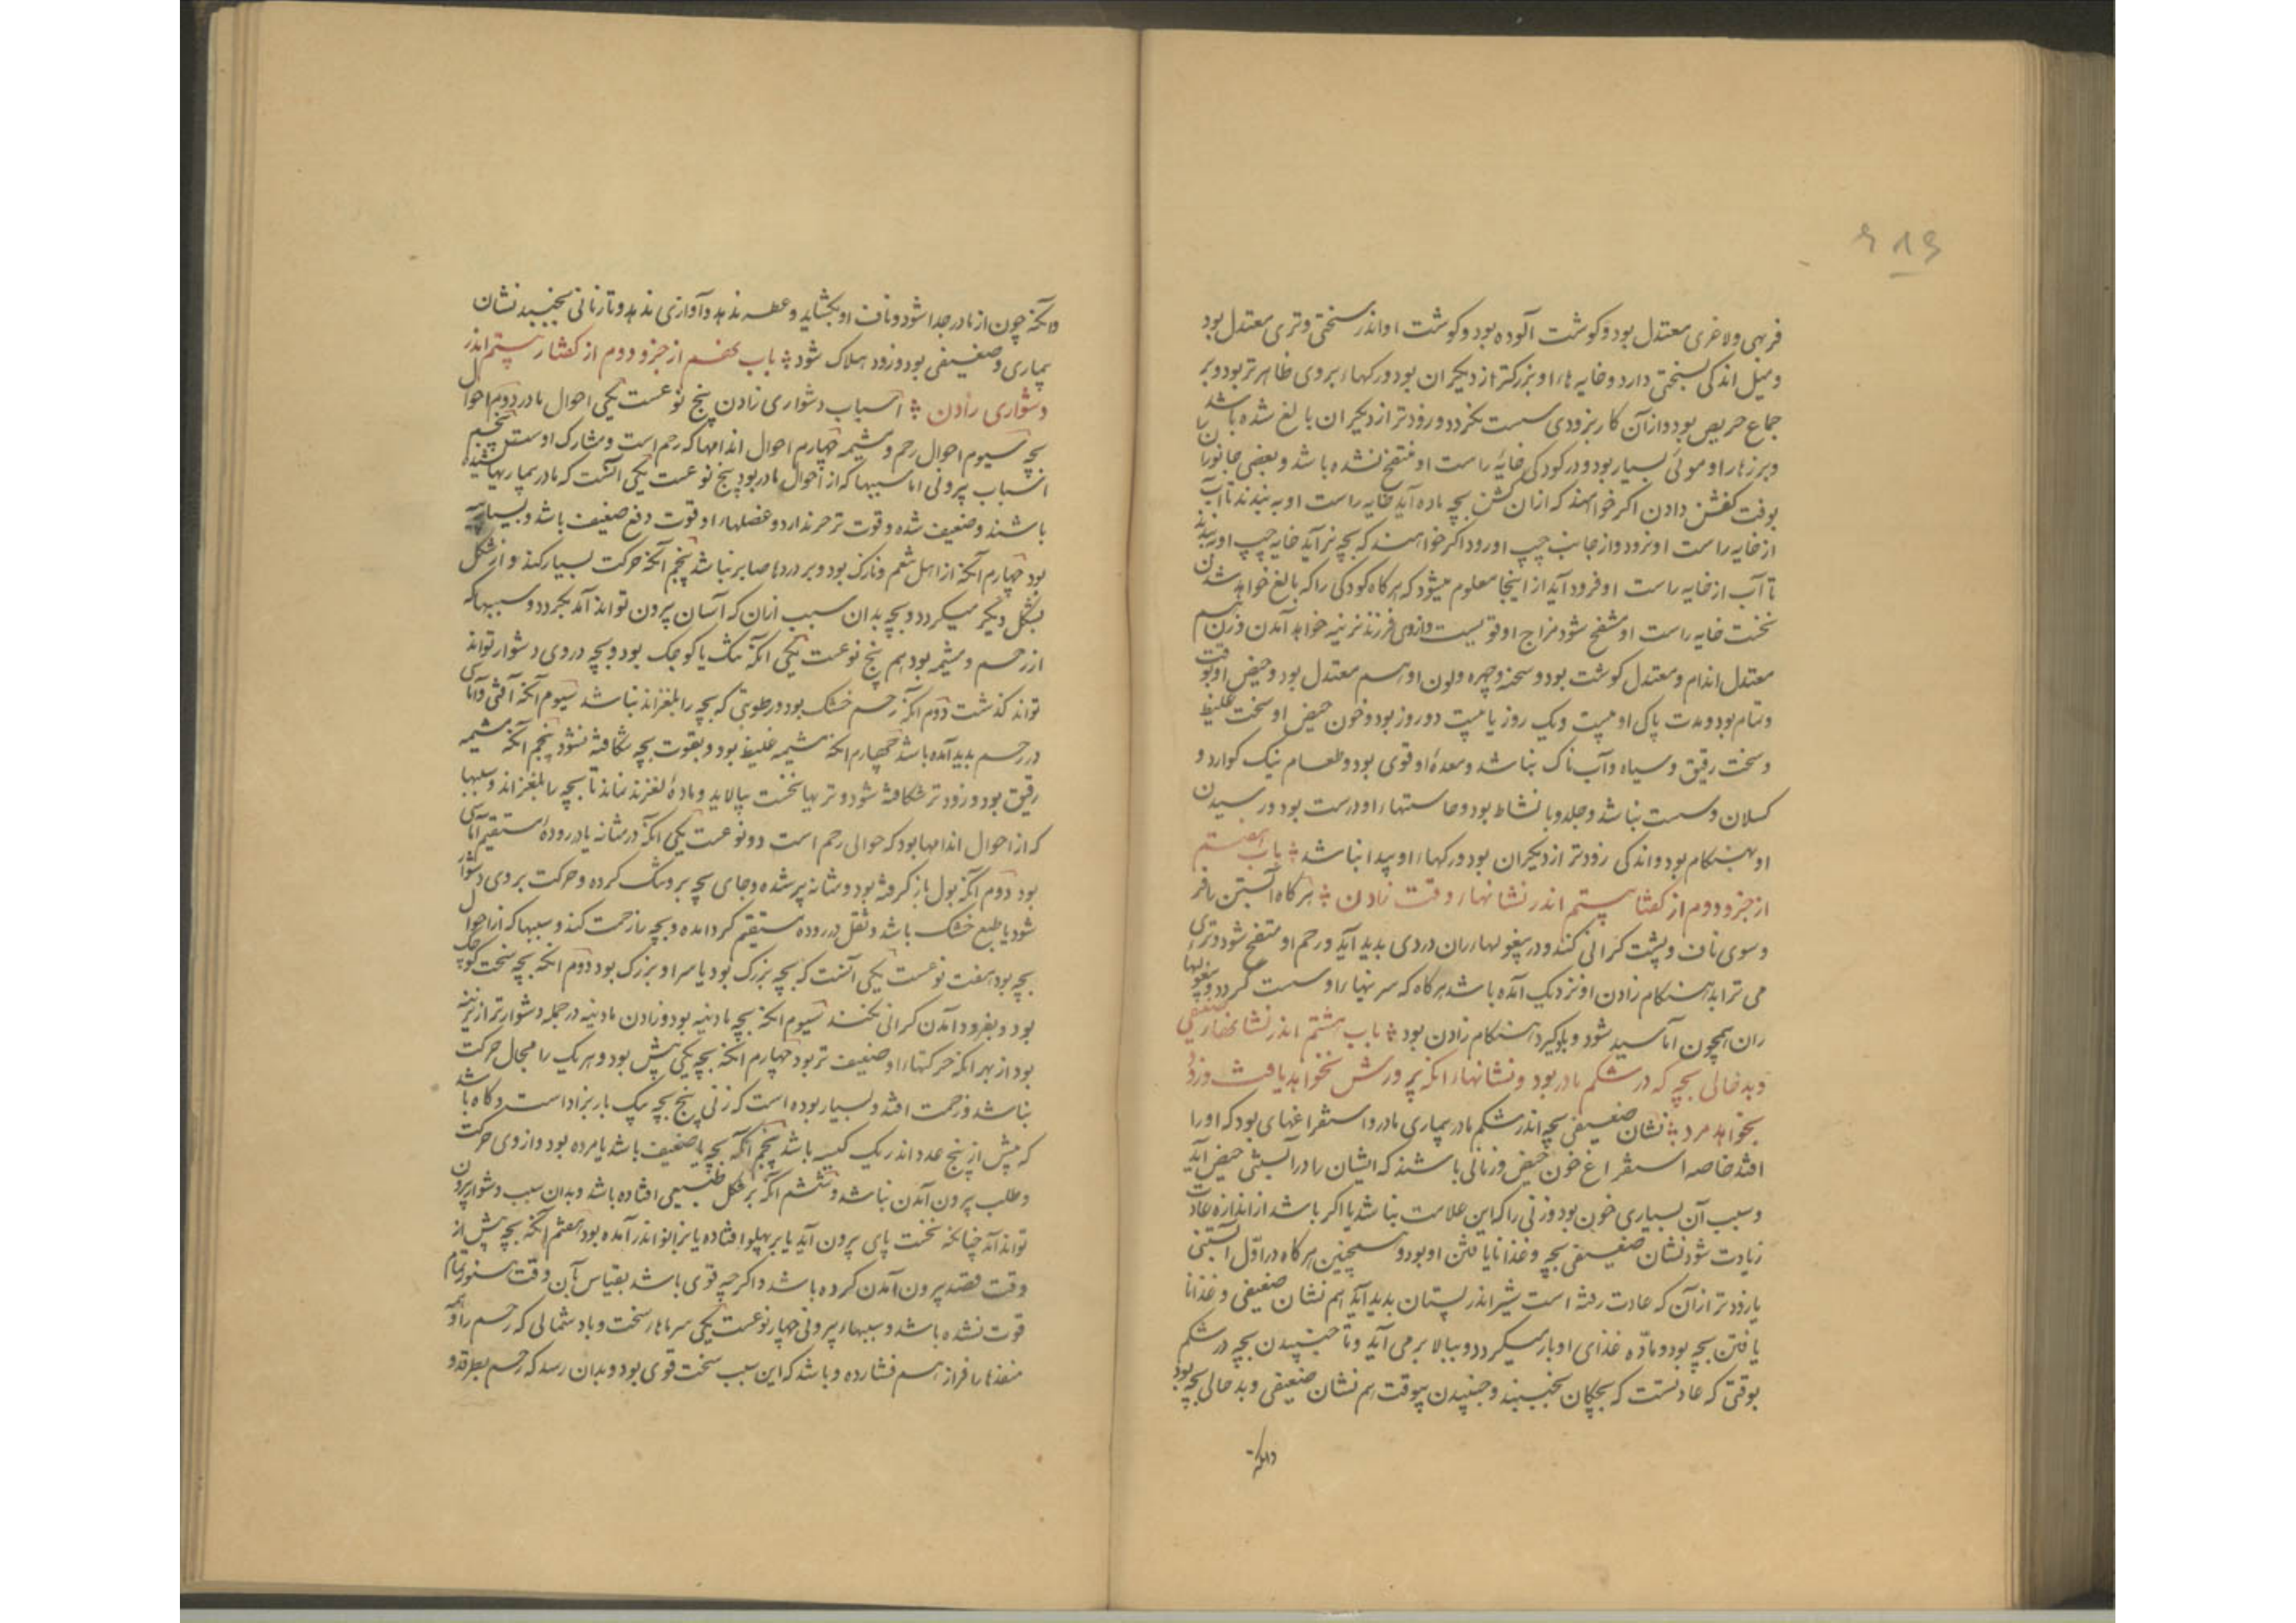 فربهی و لاغری معتدل بود و کوشت آلوده بود و کوشت او اندر سختی و تری معتدل بود
و میل اندکی بسختی دارد و خایه هاء او بزرکتر از دیکران بود و رکهاء بر وی ظاهرتر بود و بر
جماع حریص بود و از آن کار بزودی سست نکردد و زودتر از دیکران بالغ شده باشد
و بر زهار او موئی بسیار بود و در کودکی خایهٔ راست او منتفخ شده باشد و بعضی جانوران
بوقت کشن دادن اکر خواهند که از ان کشن بچه ماده آید خایه راست او به بندند تا آب
از خایه راست او نرود و از جانب چپ او رود و اکر خواهند که بچه نر آید خایه چپ او به بندند
تا آب از خایه راست او فرود آید از اینجا معلوم میشود که هر کاه کودکی را که بالغ خواهد شدن
نخست خایه راست او منتفخ شود مزاج او قویست و از وی فرزند نرینه خواهد آمدن و زن هم
معتدل اندام و معتدل کوشت بود و سحنه و چهره و لون او هم معتدل بود و حیض او بوقت
و تمام بود و مدت پاکی او بیست و یک روز یا بیست دو روز بود و خون حیض او سخت غلیظ
و سخت رقیق و سیاه و آب ناک نباشد و معدهٔ او قوی بود و طعام نیک کوارد و
کسلان و سست نباشد و جلد و با نشاط بود و حاستهاء او درست بود و رسیدن
او بهنکام بود و اندکی زودتر از دیکران بود و رکهاء او پیدا نباشد باب هفتم
از جزو دوم از کفتار ششم اندر نشانهاء وقت زادن هر کاه آبستن
و سوی ناف و پشت کرانی کند و در پیغولهاء ران دردی بدید آید و رحم او منتفخ شود و تری
می ترابد هنکام زادن او نزدیک آمده باشد هر کاه که سرینهاء او سست کردد و پیغولهاء
ران همچون آماسید شود هنکام زادن بود باب هشتم اندر نشانهاء ضعیفی
و بد حالی بچه که در شکم مادر بود و نشانهاء آنکه پرورش نخواهد یافت و زود
بخواهد مرد نشان ضعیفی بچه اندر شکم مادر بیماری مادر و استفراغهای بود که او را
افتد خاصه استفراغ خون حیض و زنانی باشند که ایشان را در آبستنی حیض آید
و سبب آن بسیاری خون بود و زنی را که این علامت نباشد یا اکر باشد از اندازه عادت
زیادت شود نشان ضعیفی بچه و غذا نا یافتن او بود و همچنین هر کاه در اول آبستنی
یا زودتر از آن که عادت رفته است شیر اندر پستان بدید آید هم نشان ضعیفی و غذا نا
یافتن بچه بود و ماده غذای او باز میکردد و ببالا بر می آید و نا جنبیدن بچه در شکم
بوقتی که عادتست که بچکان بجنبند و جنبیدن بیوقت هم نشان ضعیفی و بد حالی بچه بود
و آنکه
و آنکه چون از مادر جدا شود و ناف او بکشاید و عطسه ندهد و آوازی ندهد و تا زمانی نجنبد نشان
بیماری و ضعیفی بود و زود هلاک شود باب نهم از جزو دوم از کفتار ششم اندر
دشواری زادن اسباب دشواری زادن پنج نوعست یکی احوال مادر دوم احوال
بچه سیوم احوال رحم و مشیمه چهارم احوال اندامها که رحم است و مشارک اوست پنجم
اسباب بیرونی اما سببها که از احوال مادر بود پنج نوعست یکی آنست که مادر بیماریها کشیده
باشند و ضعیف شده و قوت تزحر ندارد و عضلهاء او قوت دفع ضعیف باشد و بسیار
بود چهارم آنکه از اهل تنعم و نازک بود و بر دردها صابر نباشد پنجم آنکه حرکت بسیار کند و از شکل
بشکل دیکر میکردد و بچه بدان سبب از ان که آسان بیرون تواند آمد بکردد و سببها که
از رحم و مشیمه بود هم پنج نوعست یکی آنکه تنک یا کوچک بود و بچه در وی دشوار تواند
تواند کذشت دوم آنکه رحم خشک بود و رطوبتی که بچه را بلغزاند نباشد سیوم آنکه آفتی و آماسی
در رحم بدید آمده باشد چهارم آنکه مشیمه غلیظ بود و بقوت بچه شکافته نشود پنجم آنکه مشیمه
رقیق بود و زودتر شکافته شود و تریها نخست بپالاید و مادهٔ لغزنده نماند تا بچه را بلغزاند و سببها
که از احوال اندامها بود که حوالی رحم است دو نوعست یکی آنکه در مثانه یا در رودهٔ مستقیم آماسی
بود دوم آنکه بول باز کرفته بود و مثانه پر شده و جای بچه برو تنک کرده و حرکت بر وی دشوار
شود یا طبع خشک باشد و ثقل در روده مستقیم کرد آمده و بچه را زحمت کند و سببها که از احوال
بچه بود هفت نوعست یکی آنست که بچه بزرک بود یا سر او بزرک بود دوم آنکه بچه سخت کوچک
بود و بفرود آمدن کرانی نکند سیوم آنکه بچه مادینه بود و زادن مادینه در جمله دشوارتر از نرینه
بود از بهر آنکه حرکتهاء او ضعیف تر بود چهارم آنکه بچه یکی بیش بود و هر یک را مجال حرکت
نباشد و زحمت افتد و بسیار بوده است که زنی پنج بچه بیک بار بزاد است و کاه باشد
که بیش از پنج عدد اندر یک کیسه باشد پنجم آنکه بچه یا ضعیف باشد یا مرده بود و از وی حرکت
و طلب بیرون آمدن نباشد و ششم آنکه بر شکل طبیعی افتاده باشد و بدان سبب دشوار بیرون
تواند آمد چنانکه نخست پای بیرون آید یا بر پهلو افتاده یا بزانو اندر آمده بود هفتم آنکه بچه پیش از
وقت قصد بیرون آمدن کرده باشد و اکر چه قوی باشد بقیاس آن وقت هنوز تمام
قوت نشده باشد و سببهاء بیرونی چهار نوعست یکی سرماء سخت و باد شمالی که رحم را و
منفذها را فراز هم فشارده و باشد که این سبب سخت قوی بود و بدان رسد که رحم بطرقد و